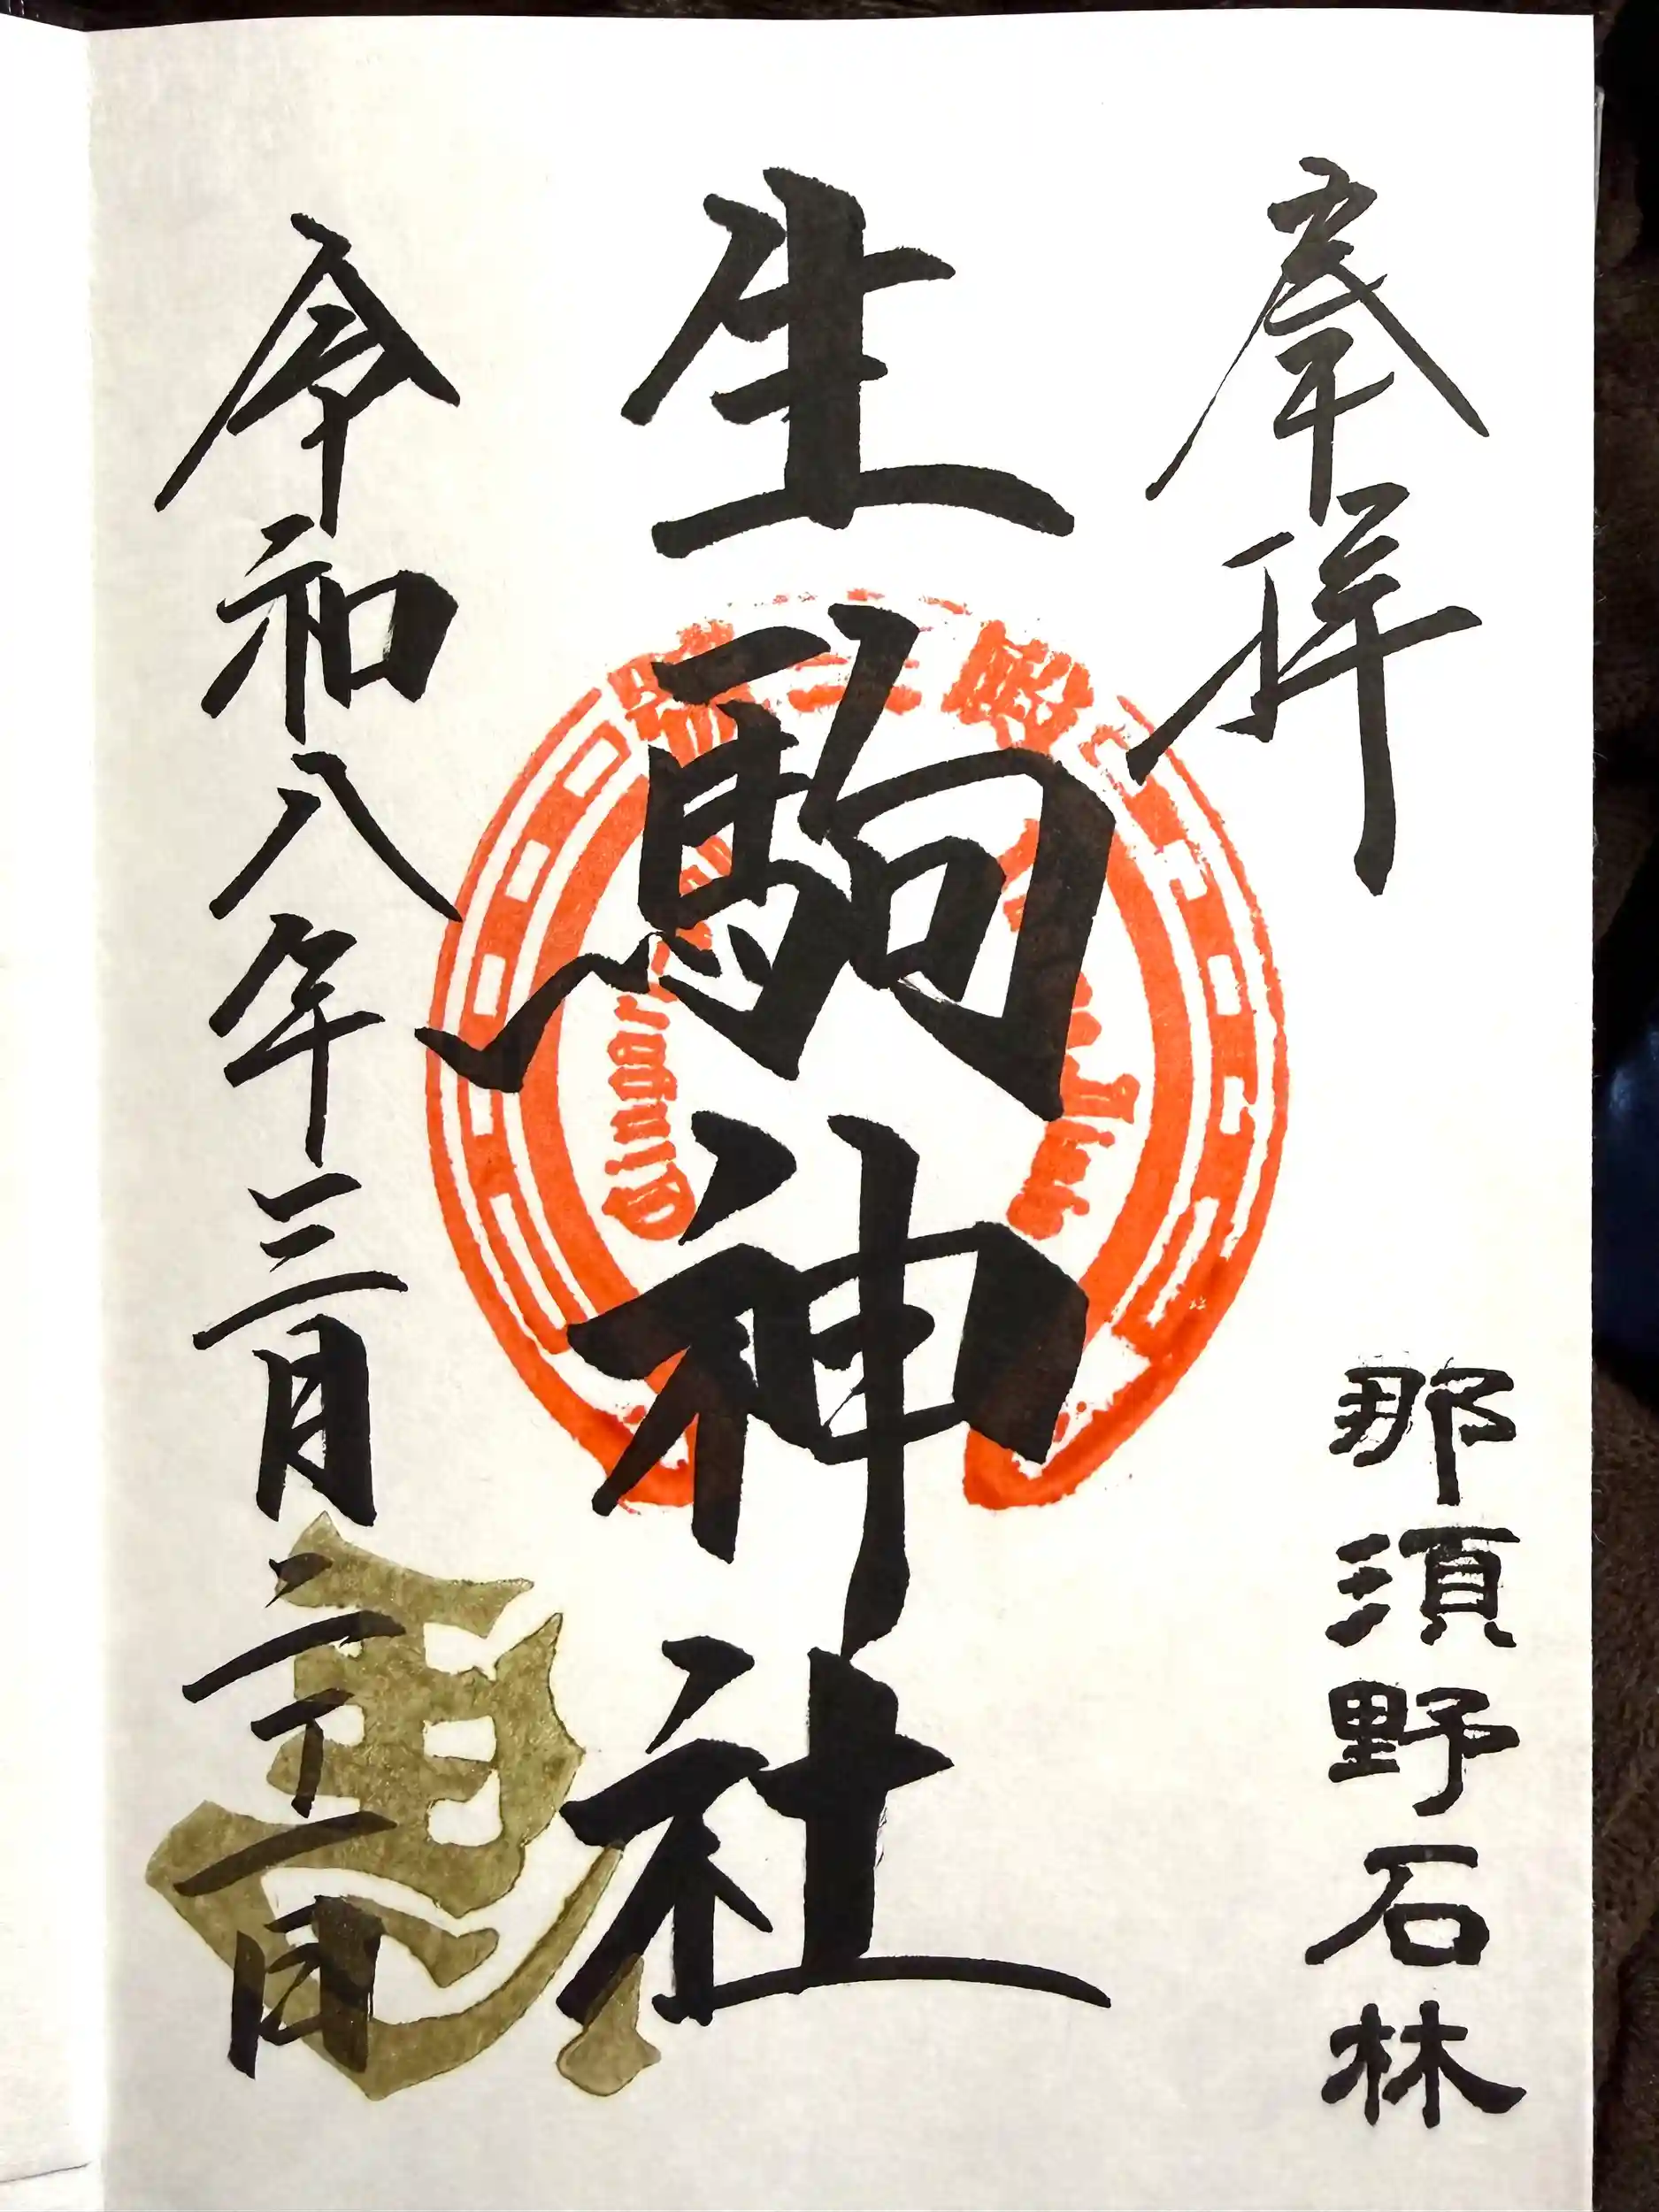 奉拝
那須野石林
生駒神社
令和八年三月二十二日